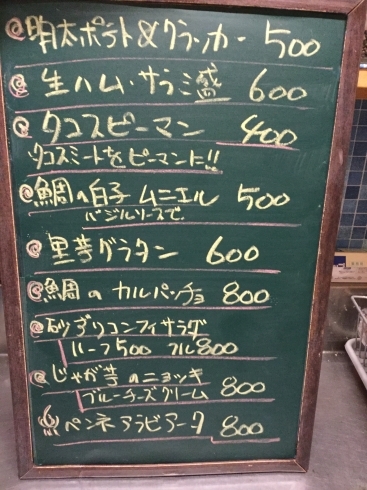 明太ポテト&クラッカー 500
生ハム・サラミ盛 600
タコスピーマン 400
タコスミートをピーマンに!!
鯛の白子 ムニエル 500
バジルソースで
里芋グラタン 600
鯛の カルパッチョ 800
砂ずりコンフィサラダ
ハーフ500 フル800
じゃが芋のニョッキ
ブルーチーズクリーム 800
ペンネアラビアータ 800